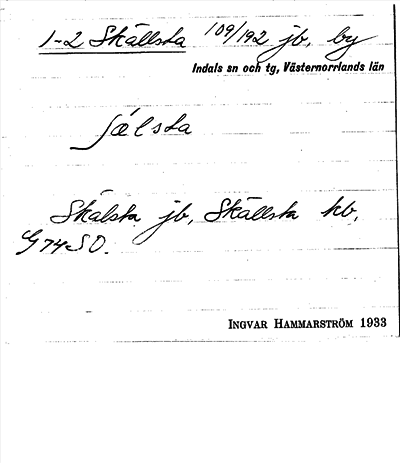 1-2 Skällsta 109/192 jb, by
Indals sn och tg, Västernorrlands län
sælsta
Skälsta jb, Skällsta kb,
G 74 SO.
INGVAR HAMMARSTRÖM 1933